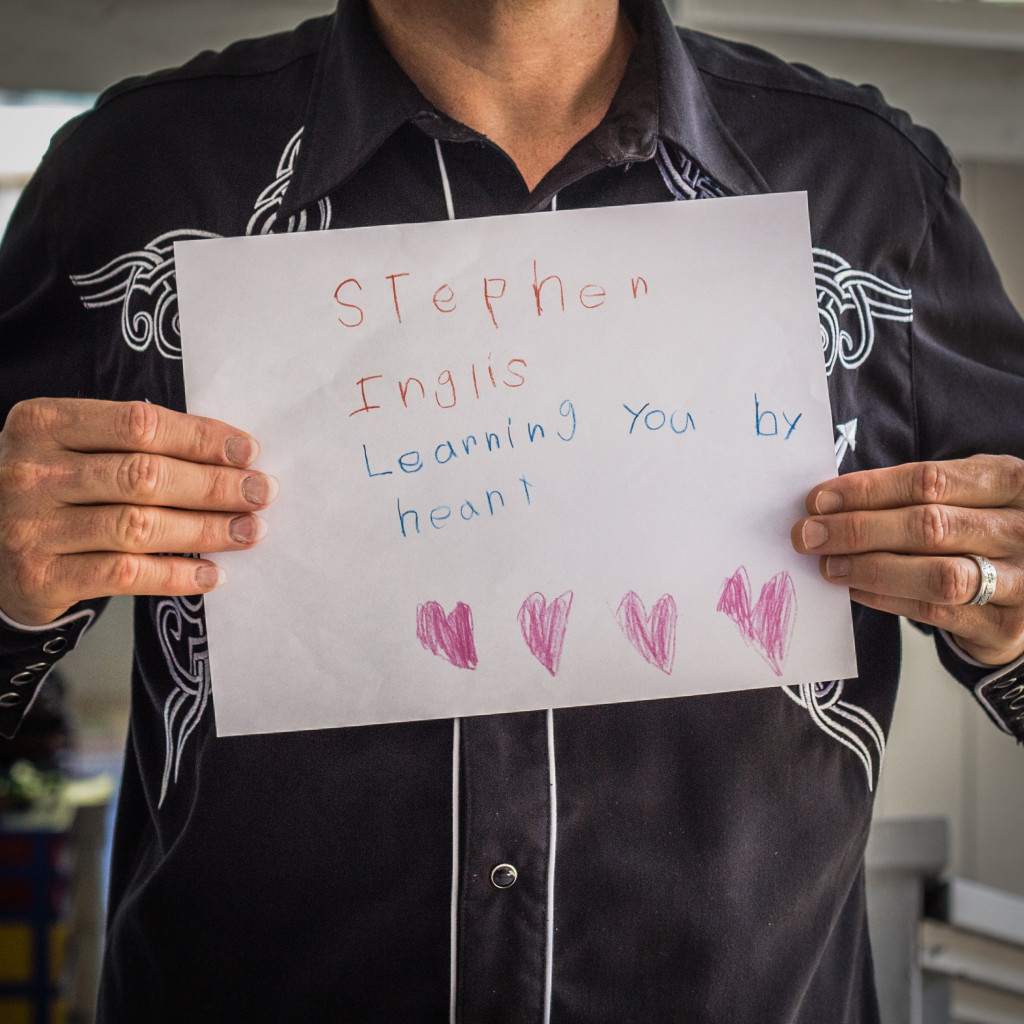 Stephen
Inglis
Learning you by
heart